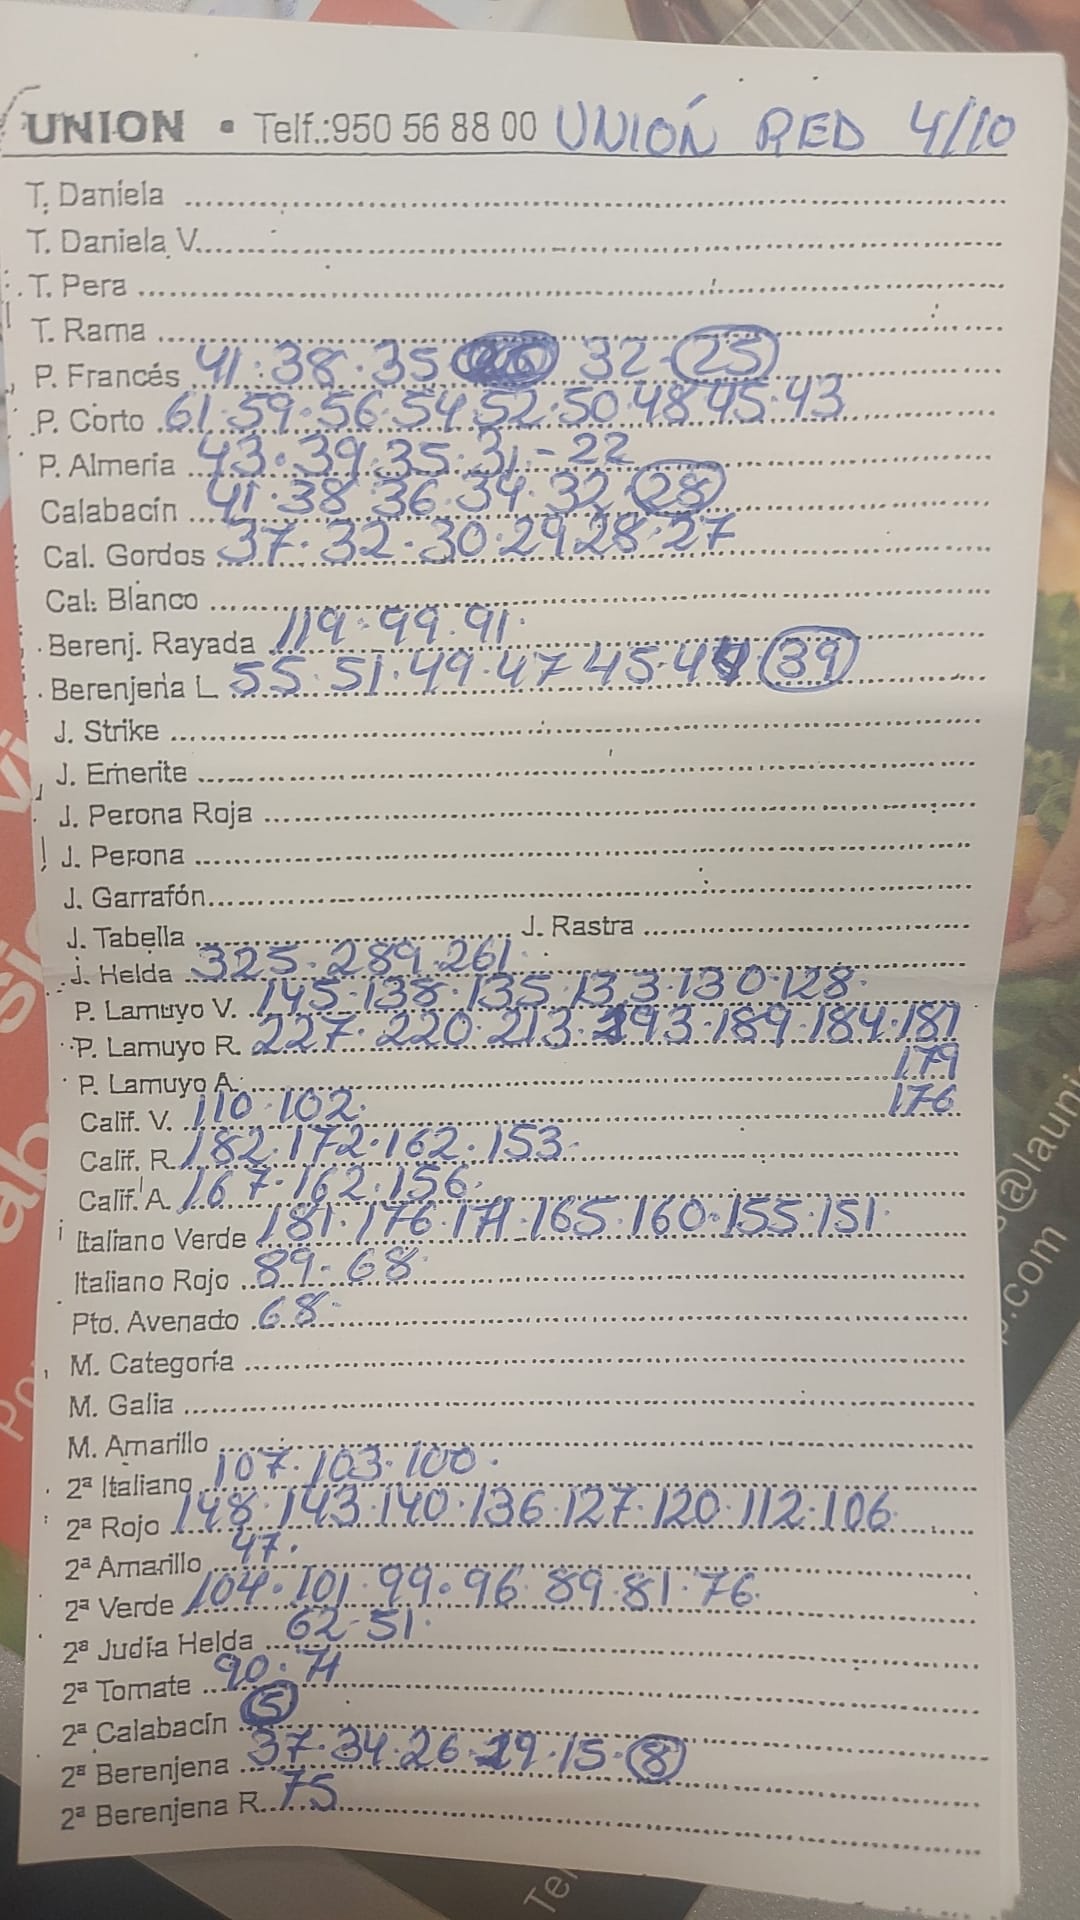 UNION • Telf.:950 56 88 00 UNIÓN RED 4/10
T. Daniela
T. Daniela V.
T. Pera
T. Rama
P. Francés 41·38·35 32-25
P. Corto 61·59·56·54·52·50·48·45·43
P. Almería 43·39·35·31-22
Calabacín 41·38·36·34·32 28
Cal. Gordos 37·32·30·29·28·27
Cal. Blanco
Berenj. Rayada 119·99·91·
Berenjena L 55·51·49·47 45· 39
J. Strike
J. Emerite
J. Perona Roja
J. Perona
J. Garrafón
J. Tabella J. Rastra
J. Helda 325·289·261·
P. Lamuyo V. 145·138·135·133·130·128·
P. Lamuyo R. 227·220·213·193·189·184·181
179
P. Lamuyo A.
176
Calif. V. 110·102·
Calif. R. 182·172·162·153·
Calif. A. 167·162·156·
Italiano Verde 181·176·171·165·160·155·151·
Italiano Rojo 89-68·
Pto. Avenado 68·
M. Categoría
M. Galia
M. Amarillo
2ª Italiano 107·103·100·
2ª Rojo 148·143·140·136·127·120·112·106
2ª Amarillo 47·
2ª Verde 104·101·99·96·89·81·76·
2ª Judía Helda 62-51·
2ª Tomate 90·71
2ª Calabacín 5
2ª Berenjena 37·34·26 19·15·8
2ª Berenjena R. 75
@launi
.com